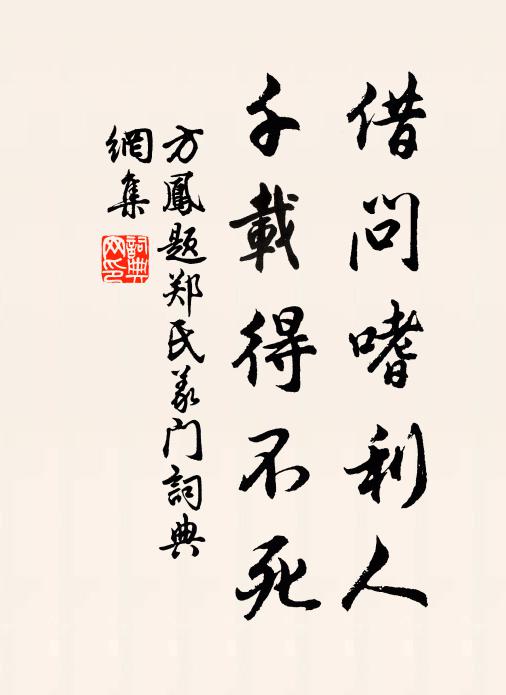 借问嗜利人
千載得不死
方鳳题郑氏义门詞典
網集
詞典
网印